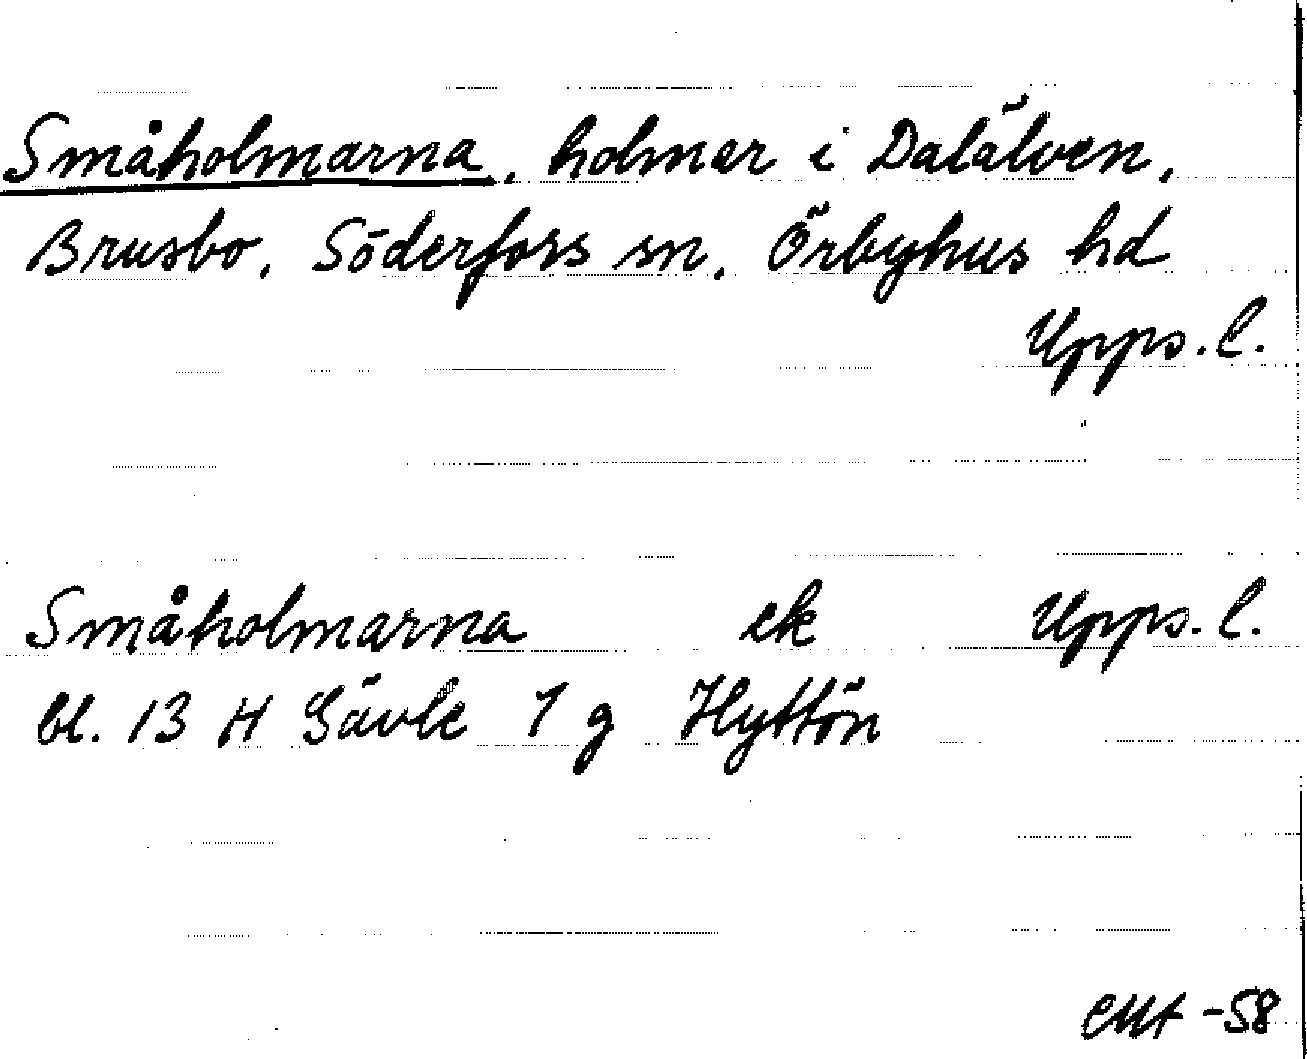 Småholmarna, holmer i Dalälven,
Brusbo, Söderfors sn, Örbyhus hd
Upps. l.
Småholmarna ek Upps. l.
bl. 13 H Gävle 7 g Hyttön
-58